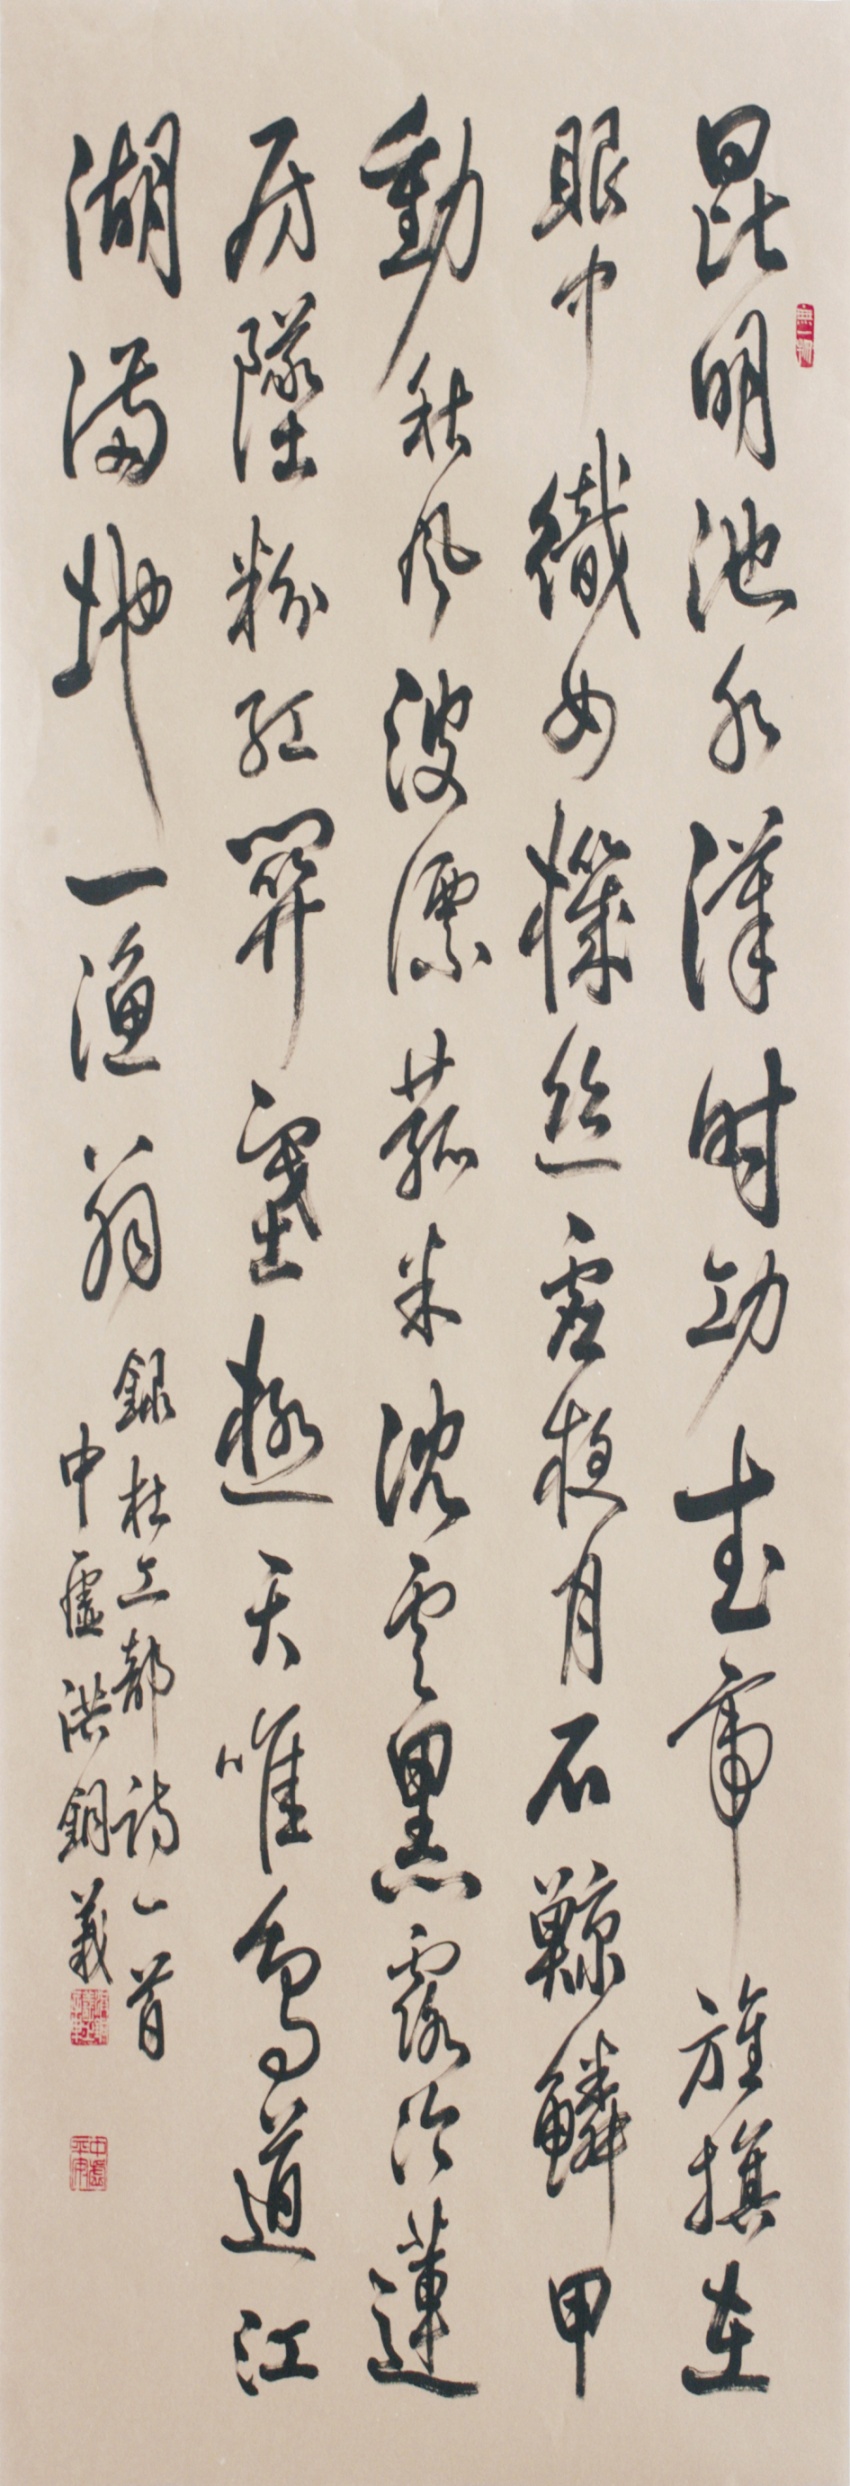 昆明池水漢時功武帝旌旗在
眼中織女機絲虛夜月石鯨鱗甲
動秋風波漂菰米沈雲黑露冷蓮
房墜粉紅關塞極天唯鳥道江
湖滿地一漁翁
錄杜工部詩一首
中虛洪銅義